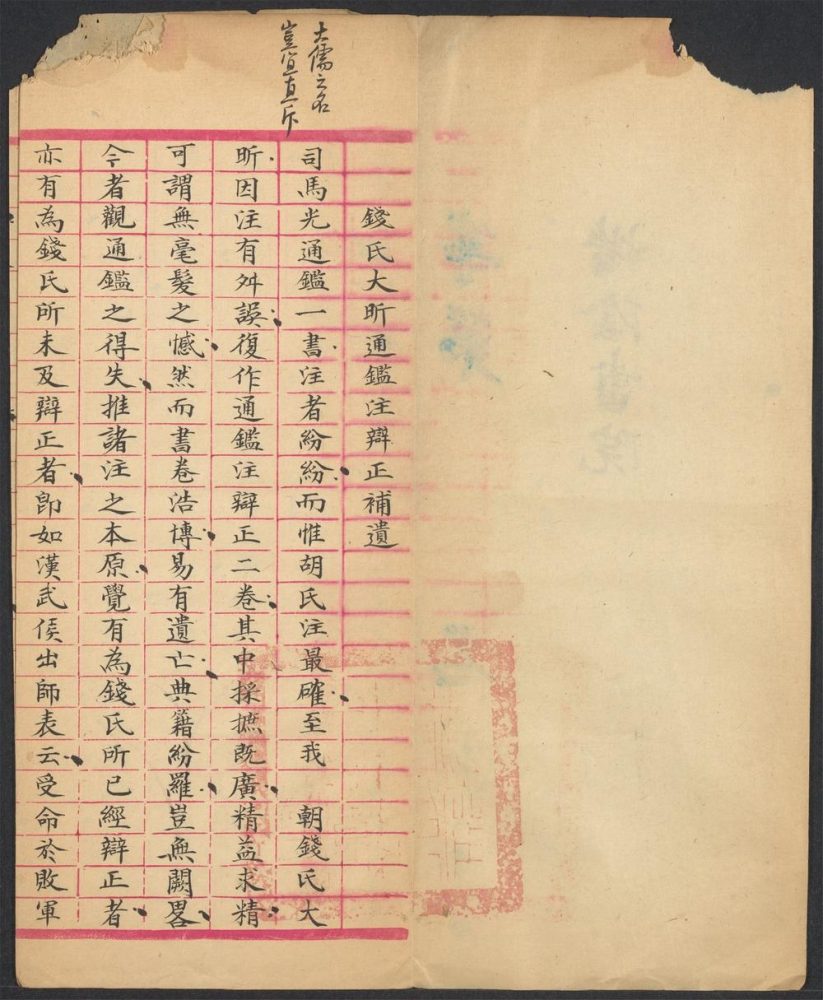 大儒之名
豈宜直斥
錢氏大昕通鑑注辯正補遺
司馬光通鑑一書注者紛紛而惟胡氏注最確至我 朝錢氏大
昕因注有舛誤復作通鑑注辯正二卷其中採摭既廣精益求精
可謂無毫髮之憾然而書卷浩博易有遺亡典籍紛羅豈無闕畧
今者觀通鑑之得失推諸注之本原覺有為錢氏所已經辯正者
亦有為錢氏所未及辯正者卽如漢武侯出師表云受命於敗軍